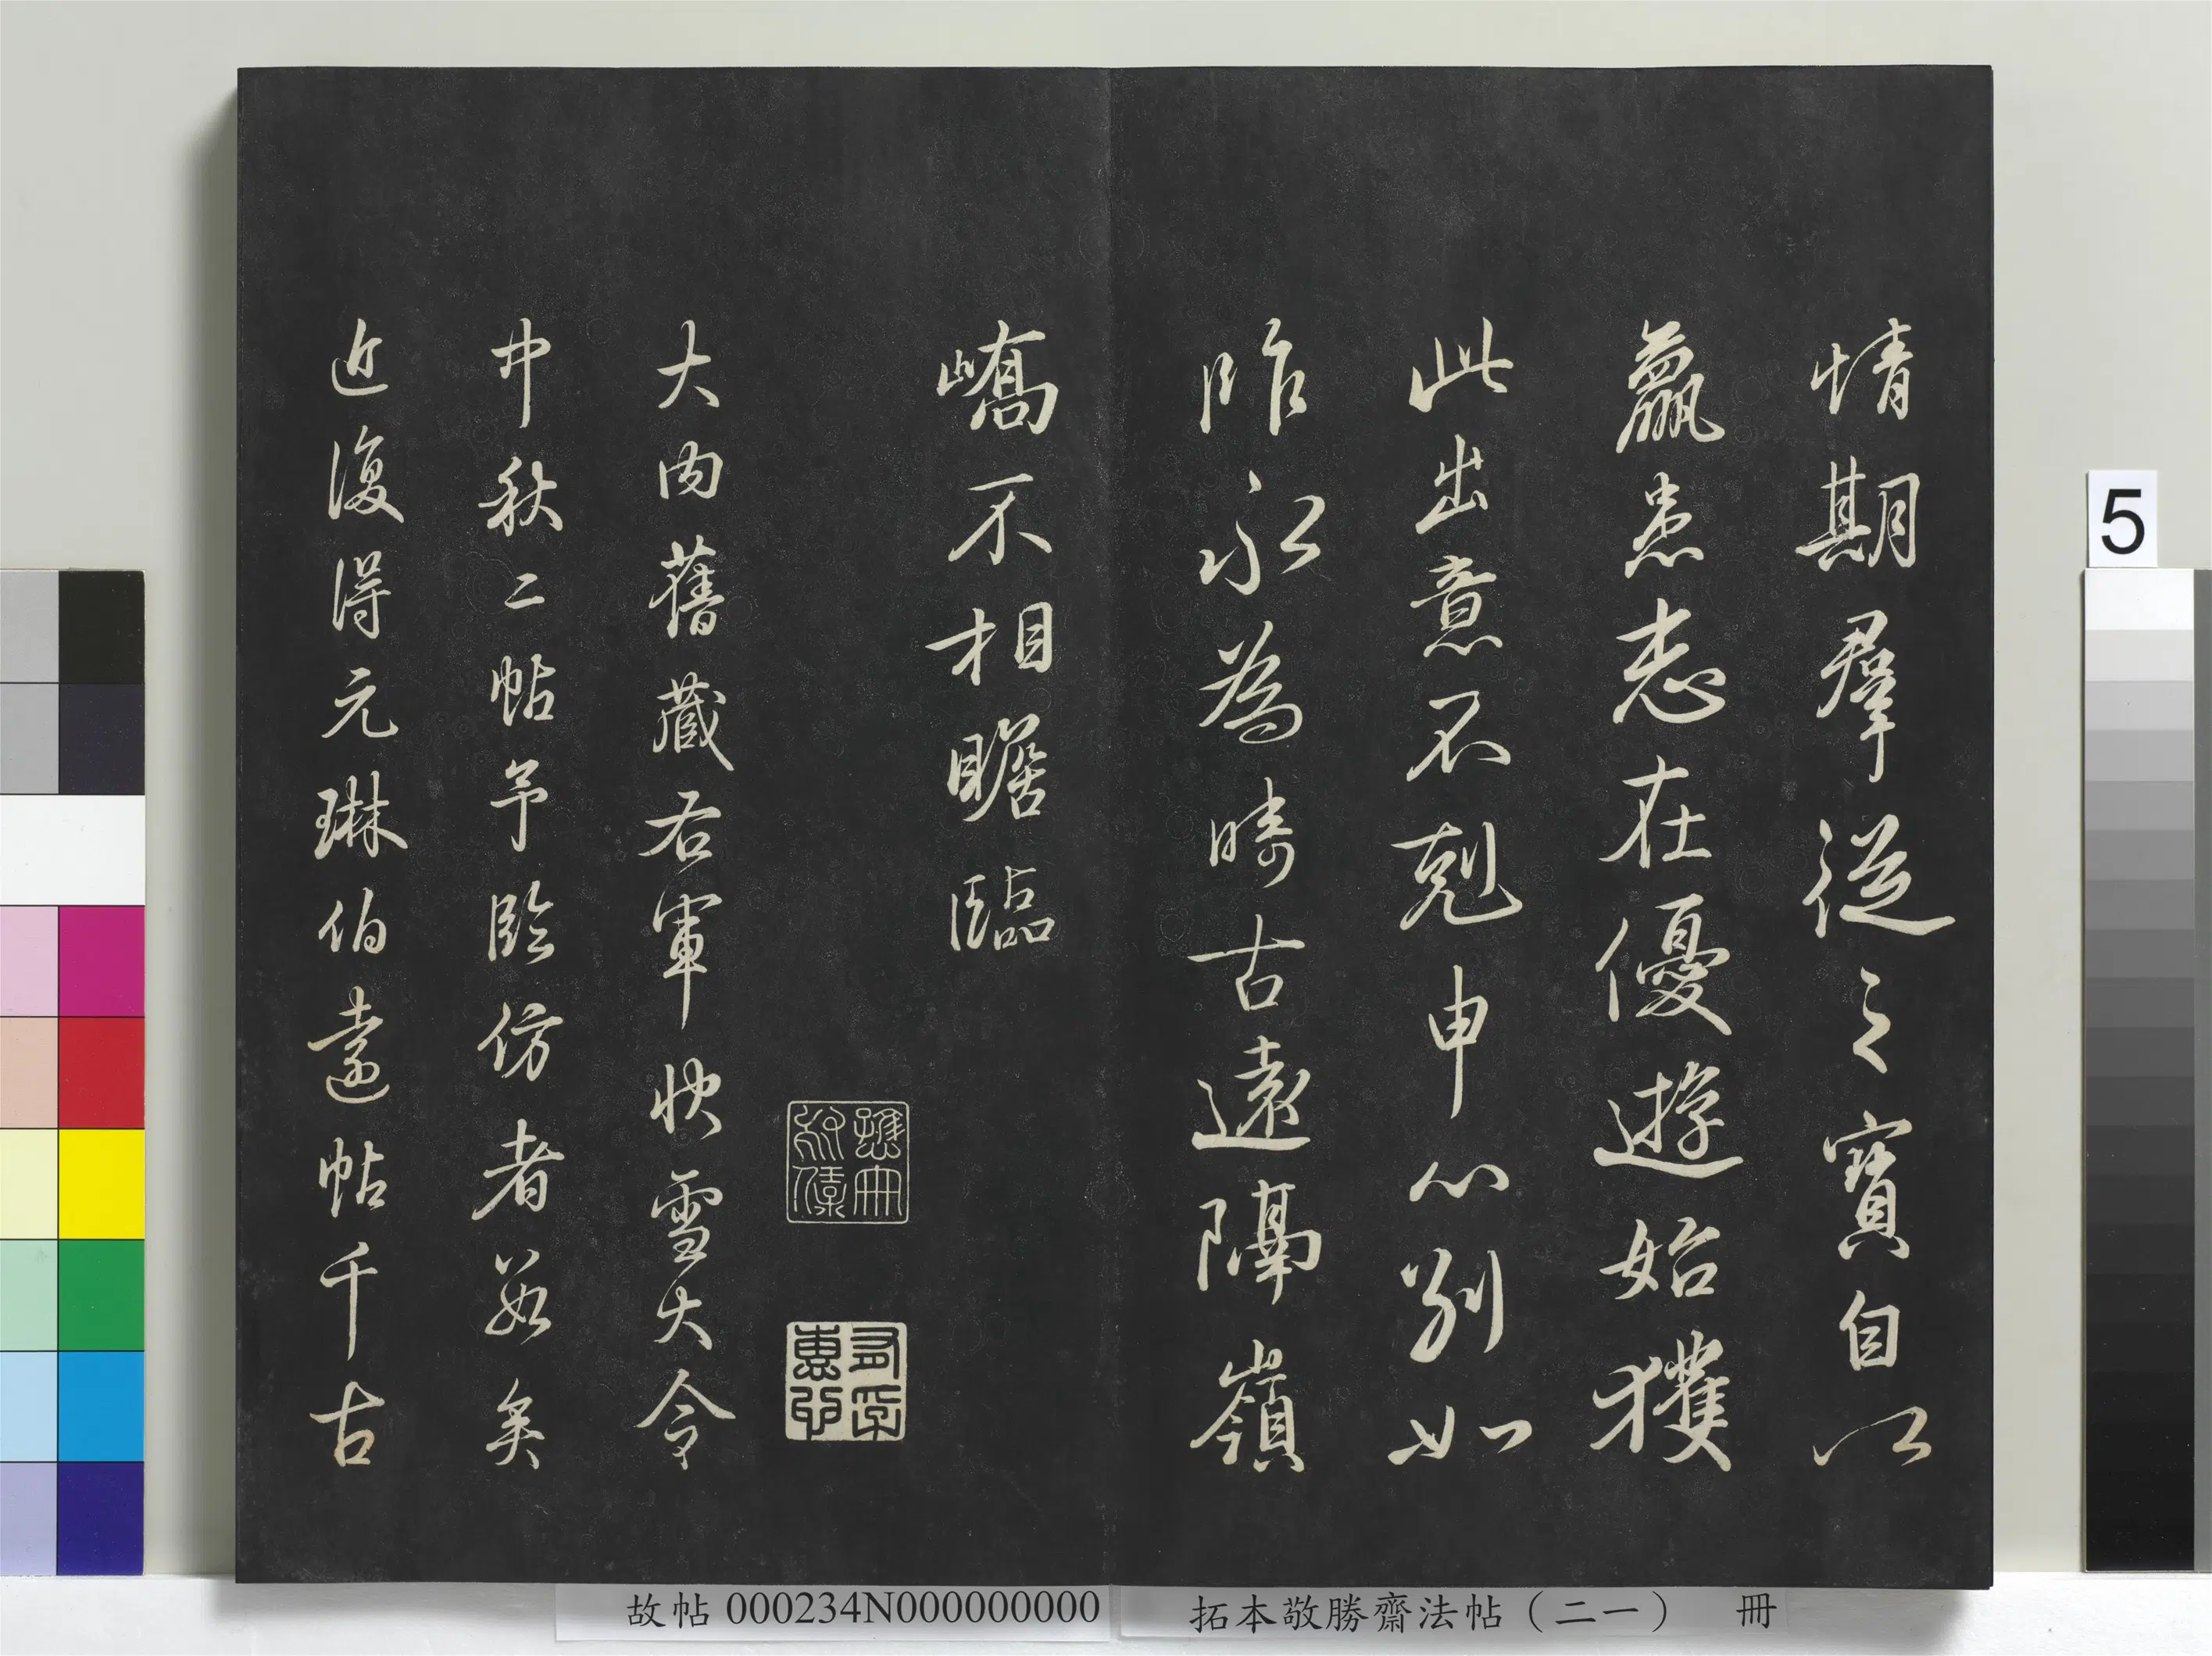 情期羣從之寶自以
羸患志在優遊始獲
此出意不剋申分別如
昨永為疇古遠隔嶺
嶠不相瞻臨
大內舊藏右軍快雪大令
中秋二帖予臨仿者數矣
近復得元琳伯遠帖千古
5
故帖 000234N000000000
拓本敬勝齋法帖（二一） 冊